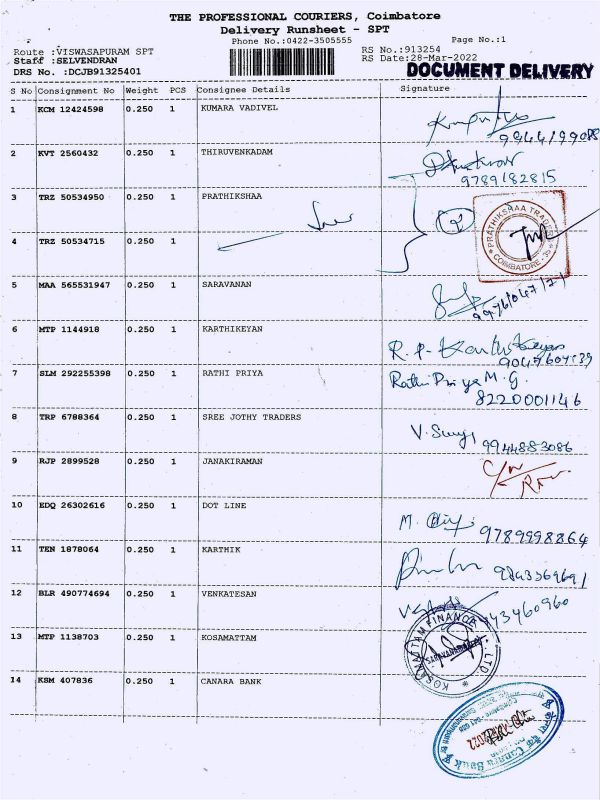 THE PROFESSIONAL COURIERS, Coimbatore
Delivery Runsheet - SPT
Phone No.:0422-3505555
Page No.:1
Route :VISWASAPURAM SPT
RS No.:913254
Staff :SELVENDRAN
RS Date:28-Mar-2022
DRS No. :DCJB91325401
DOCUMENT DELIVERY
S No Consignment No Weight PCS Consignee Details Signature
1 KCM 12424598 0.250 1 KUMARA VADIVEL
2 KVT 2560432 0.250 1 THIRUVENKADAM
9789182815
3 TRZ 50534950 0.250 1 PRATHIKSHAA
2
PRATHIKSHAA TRADERS
COIMBATORE
4 TRZ 50534715 0.250 1
5 MAA 565531947 0.250 1 SARAVANAN
6 MTP 1144918 0.250 1 KARTHIKEYAN
R. P. Karthikeyan
7 SLM 292255398 0.250 1 RATHI PRIYA
Rathi Priya M. G.
8220001146
8 TRP 6788364 0.250 1 SREE JOTHY TRADERS
9944883086
9 RJP 2899528 0.250 1 JANAKIRAMAN
10 EDQ 26302616 0.250 1 DOT LINE
9789998864
11 TEN 1878064 0.250 1 KARTHIK
12 BLR 490774694 0.250 1 VENKATESAN
13 MTP 1138703 0.250 1 KOSAMATTAM
KOSAMATTAM FINANCE LTD
14 KSM 407836 0.250 1 CANARA BANK
Canara Bank
2022